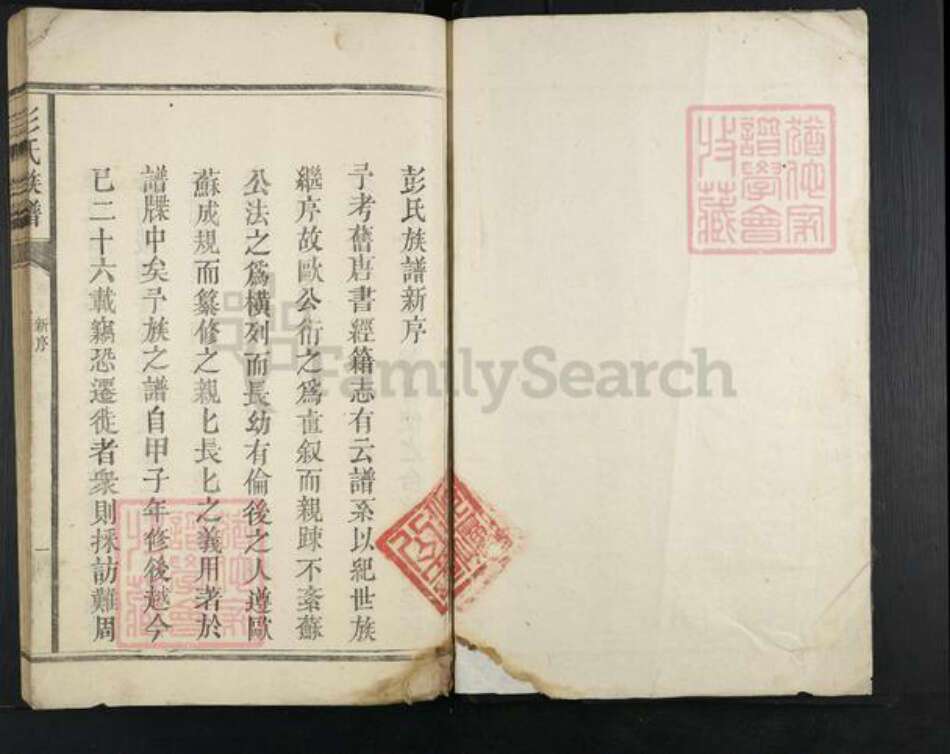 彭氏族譜新序
予考舊唐書經籍志有云譜系以紀世族
繼序故歐公衍之為直叙而親踈不紊蘇
公法之為橫列而長幼有倫後之人遵歐
蘇成規而纂修之親匕長匕之義用著於
譜牒中矣予族之譜自甲子年修後越今
已二十六載竊恐遷徙者衆則採訪難周
氏族譜
新序
一
譜學會
收藏
FamilySearch